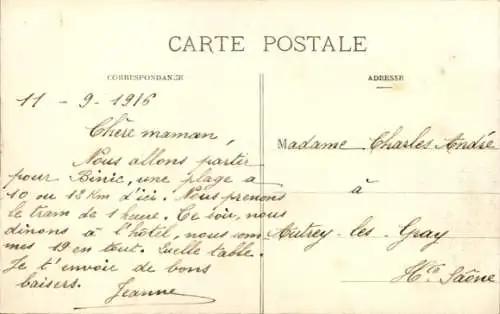 CARTE POSTALE
CORRESPONDANCE
11 - 9 - 1916
Chère maman,
Nous allons partir
pour Binic, une plage à
10 ou 12 Km d'ici. Nous prenons
le tram de 1 heure. Ce soir, nous
dînons à l'hôtel, nous som
mes 19 en tout. Quelle table.
Je t'envoie de bons
baisers. Jeanne
ADRESSE
Madame Charles André
à
Autrey-les-Gray
Hte Saône